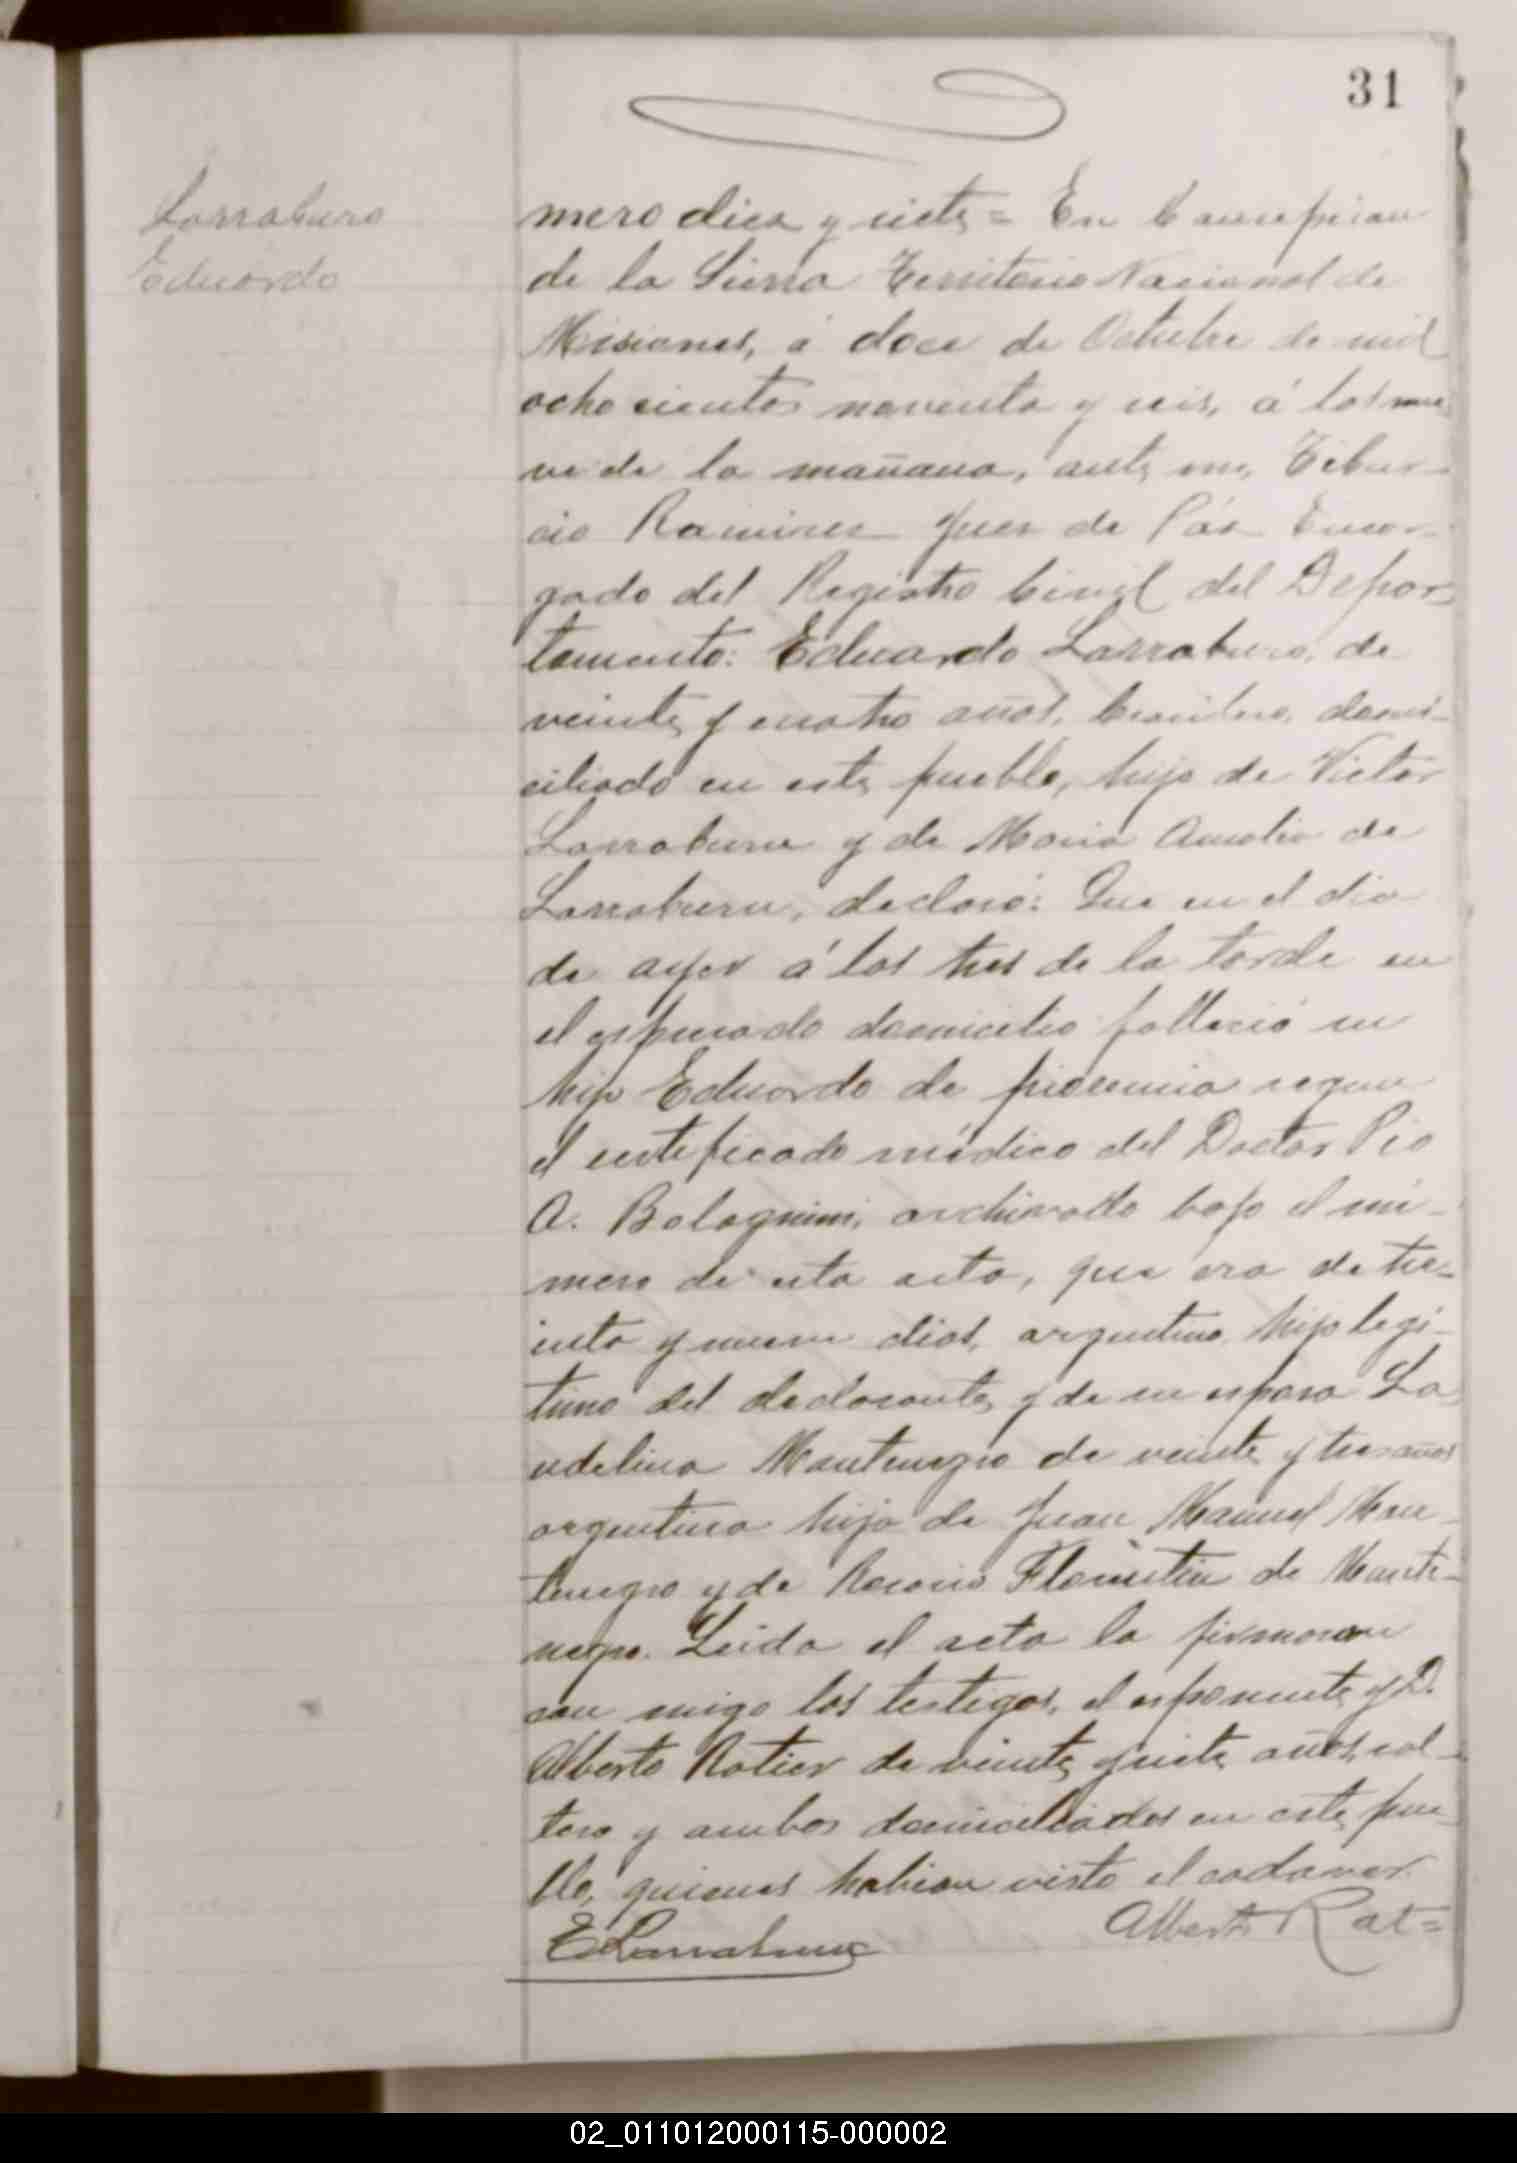 31
Larraburo
Eduardo
mero diez y siete = En Concepcion
de la Sierra Territorio Nacional de
Misiones, á doce de Octubre de mil
ocho cientos noventa y seis, á las nue
ve de la mañana, ante mi, Tibur-
cio Ramirez Juez de Páz Encar-
gado del Registro Civil del Depar-
tamento: Eduardo Larraburo, de
veinte y cuatro años, domi-
ciliado en este pueblo, hijo de Victor
Larraburu y de Maria Amelia de
Larraburu, declaró: Que en el dia
de ayer á las tres de la tarde en
el espresado domicilio falleció su
hijo Eduardo de segun
el certificado médico del Doctor Pio
A. Bolognini, archivado bajo el nú-
mero de esta acta, que era de tre-
inta y nueve dias, argentino, hijo legí-
timo del declarante, y de su esposa La
udelina Montenegro de veinte y tres años
argentina hija de Juan Manuel Mon-
tenegro y de Rosario Florentin de Monte-
negro. Leida el acta la firmaron
con migo los testigos, el esponente y D.
Alberto Rotier de veinte y siete años, sol-
tero y ambos domiciliados en este pue-
blo, quienes habian visto el cadaver.
E Larraburu
Alberto Rat=
02_011012000115-000002